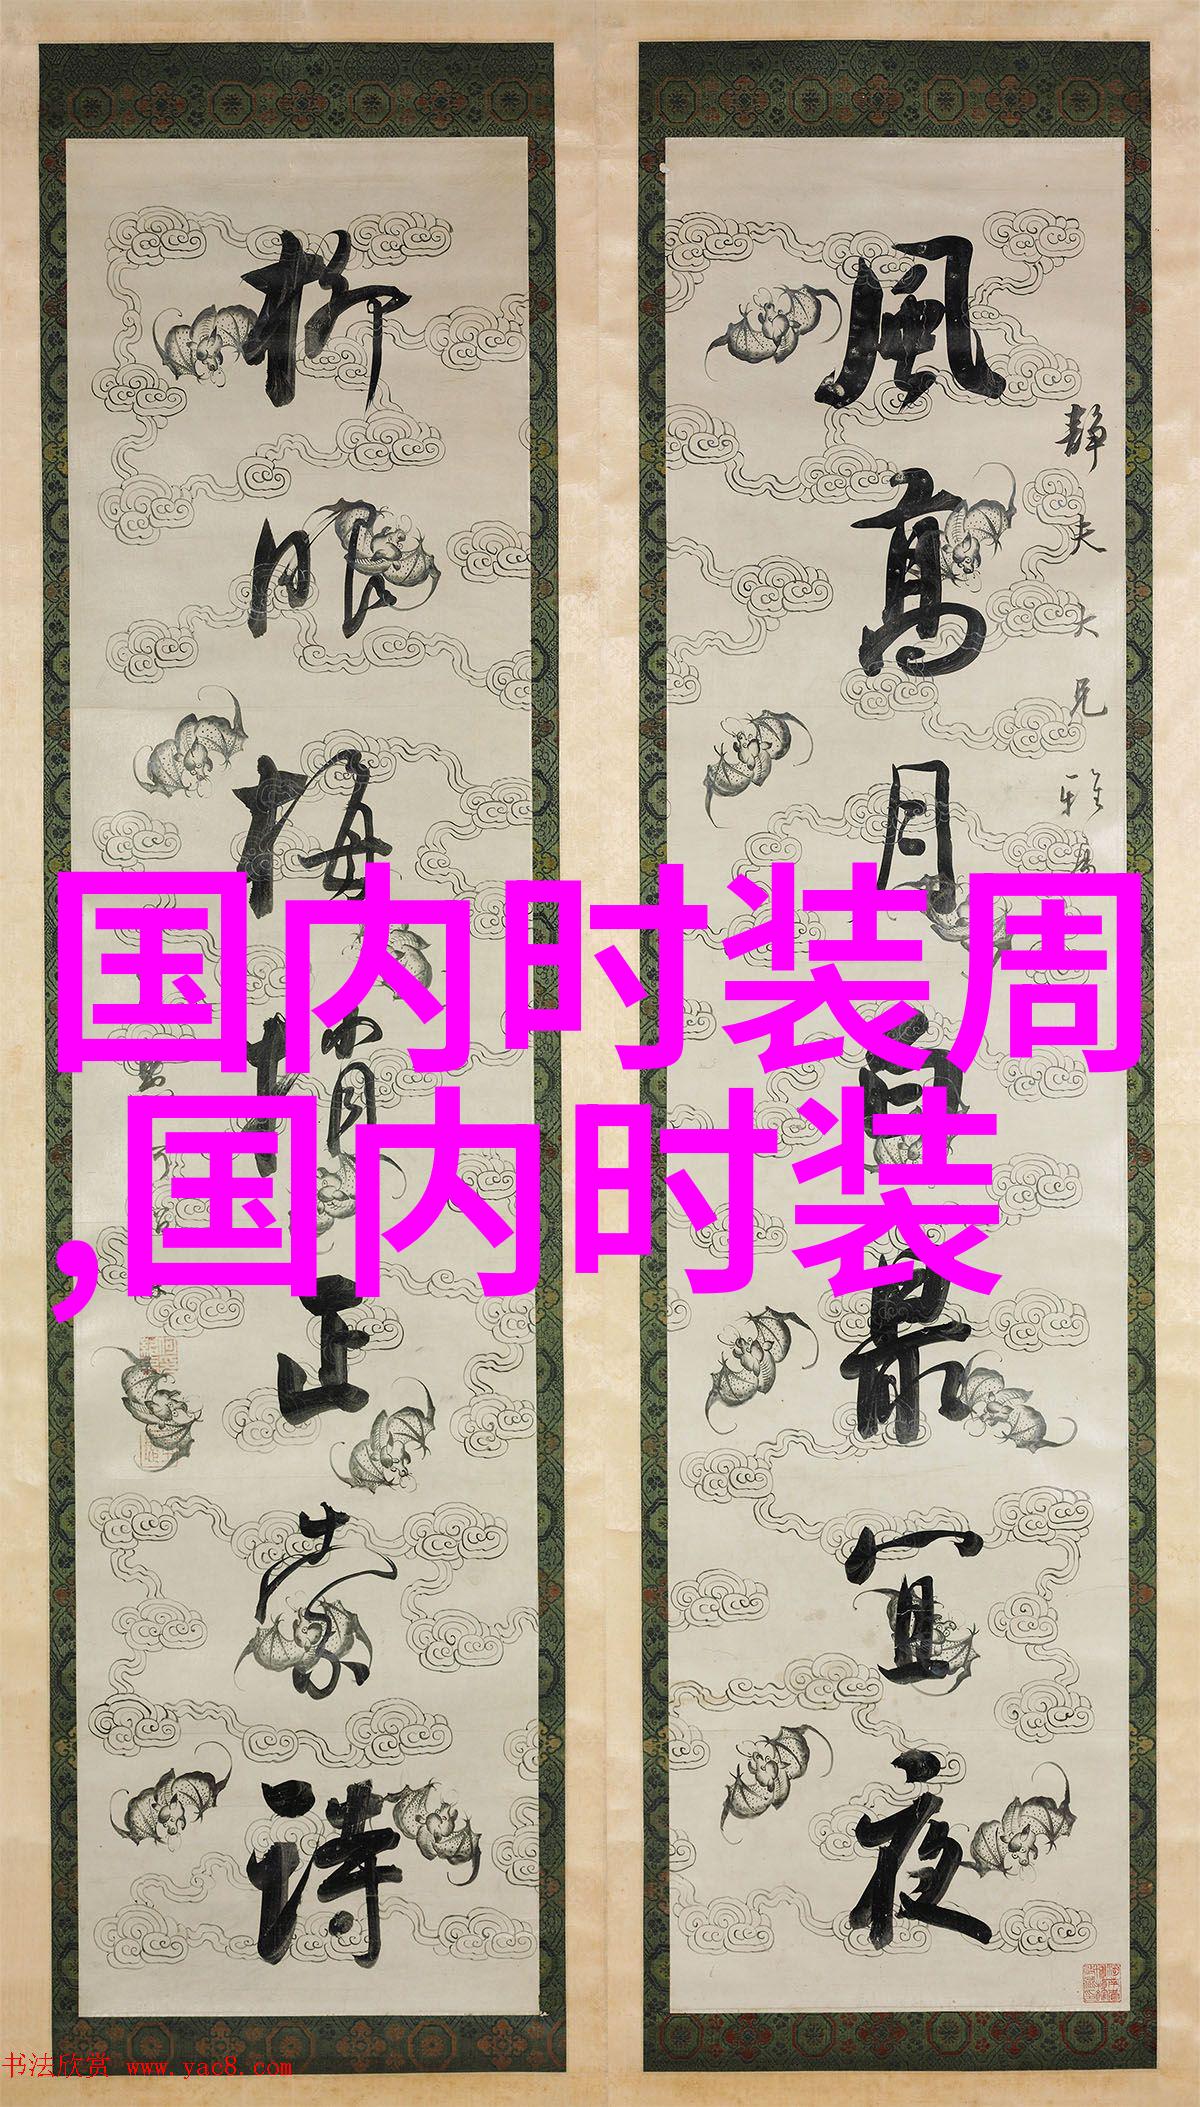 静夫大兄雅
風高月白最宜夜
柳眼梅梢正索詩
国内时装周
,国内时装
书法欣赏 www.yac8.com